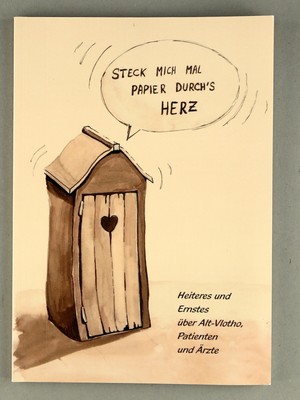 STECK MICH MAL
PAPIER DURCH'S
HERZ
Heiteres und
Ernstes
über Alt-Vlotho,
Patienten
und Ärzte